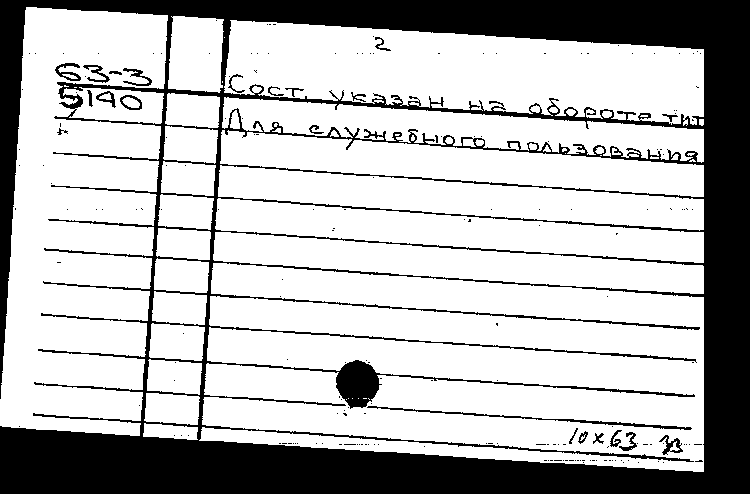 2
63-3
5140
Сост. указан на обороте тит
Для служебного пользования
10 x 63